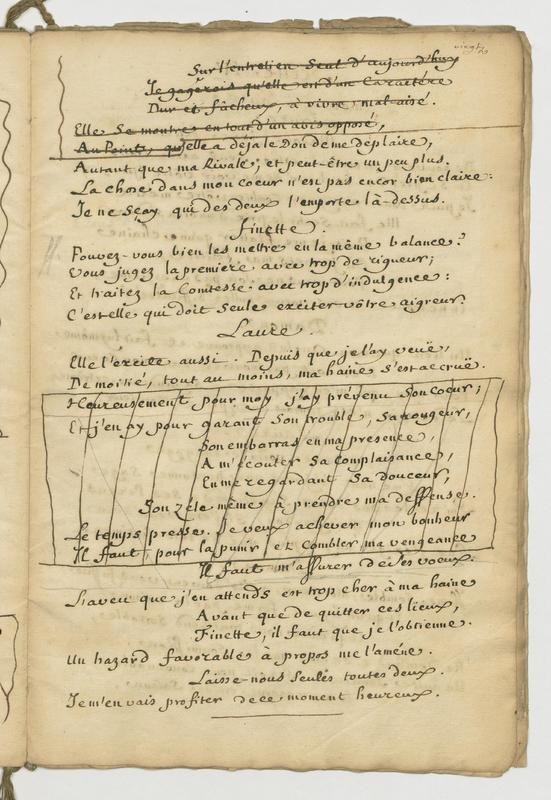 vingt
Sur l'entretien Seul d'aujourd'huy
Je gagerois qu'elle est d'un Caractére
Dur et fâcheux, à vivre mal aisé.
Elle Se montre en tout d'un avis opposé,
Au Point, qu'elle a déja le Don de me déplaire,
Autant que ma Rivale; et peut-être un peu plus.
La chose dans mon Coeur n'est pas encor bien claire:
Je ne Sçay qui des deux l'emporte là-dessus.
finette.
Pouvez-vous bien les mettre en la même balance?
Vous jugez la premiére avec trop de rigueur;
Et traitez la Comtesse avec trop d'indulgence:
C'est elle qui doit Seule exciter vôtre aigreur.
Laure.
Elle l'éxcite aussi. Depuis que je l'ay veuë,
De moitié, tout au moins, ma haine s'est accruë.
Heureusement pour moy j'ay prévenu Son Coeur;
Et j'en ay pour garant Son trouble, Sa rougeur,
Son embarras en ma presence,
A m'écouter Sa Complaisance,
En me regardant Sa douceur,
Son zéle même à prendre ma deffense.
Le temps presse. Je veux achever mon bonheur
Il faut pour la punir et combler ma vengeance
Il faut m'assurer de ses voeux.
L'aveu que j'en attends est trop cher à ma haine
Avant que de quitter ces lieux,
Finette, il faut que je l'obtienne.
Un hazard favorable à propos me l'améne.
Laisse-nous Seules toutes deux.
Je m'en vais profiter de ce moment heureux.